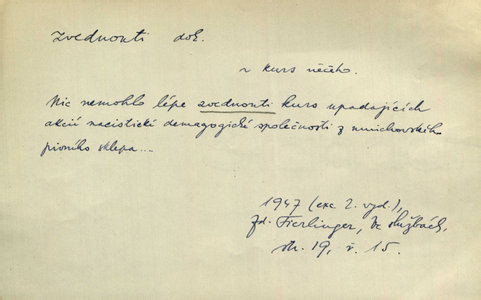 zvednouti dok.
~ kurs něčeho.
Nic nemohlo lépe zvednouti kurs upadajících
akcií nacistické demagogické společnosti z mnichovského
pivního sklepa...
1947 (exc 2. vyd.),
Zd. Fierlinger, Ve službách,
str. 19, ř. 15.